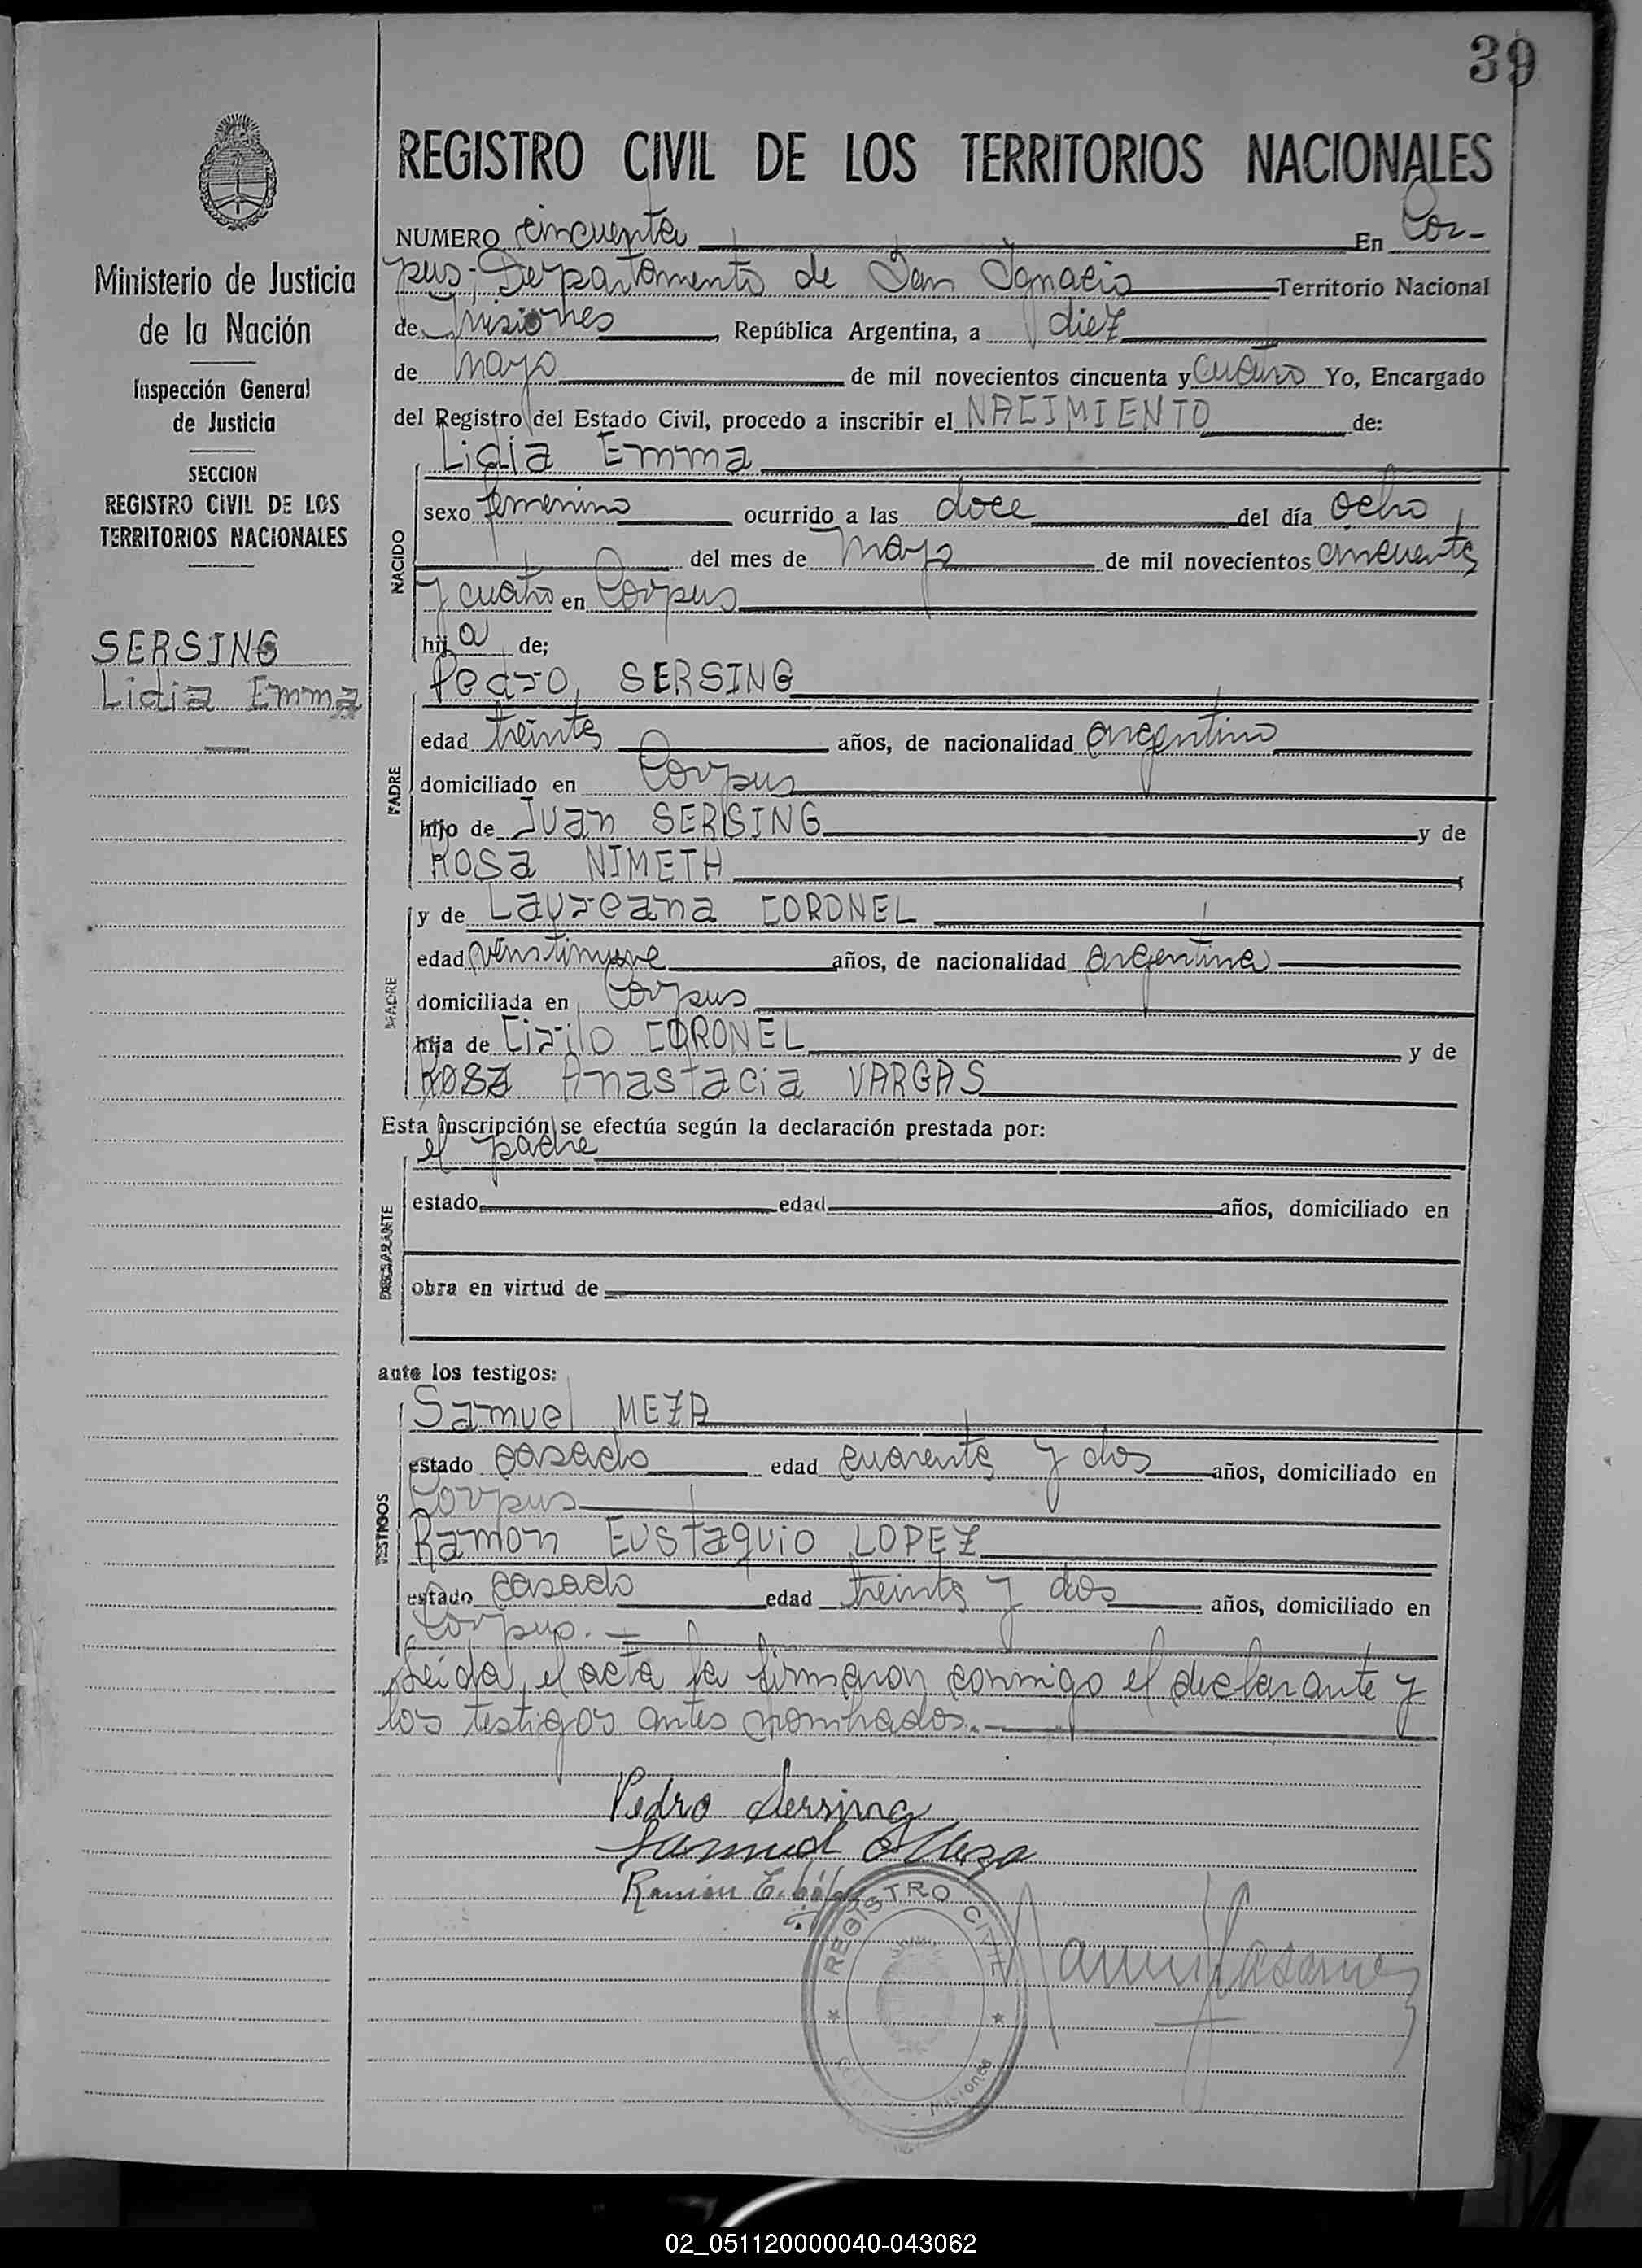 39
REGISTRO CIVIL DE LOS TERRITORIOS NACIONALES
NUMERO cincuenta En Cor-
pus, Departamento de San Ignacio Territorio Nacional
de Misiones, República Argentina, a diez
de mayo de mil novecientos cincuenta y cuatro Yo, Encargado
del Registro del Estado Civil, procedo a inscribir el NACIMIENTO de:
Lidia Emma
NACIDO
sexo femenino ocurrido a las doce del día ocho
del mes de mayo de mil novecientos cincuenta
y cuatro en Corpus
hija de;
Pedro SERSING
PADRE
edad treinta años, de nacionalidad argentino
domiciliado en Corpus
hijo de Juan SERSING y de
Rosa NIMETH
y de Laureana CORONEL
MADRE
edad veintinueve años, de nacionalidad argentina
domiciliada en Corpus
hija de Cirilo CORONEL y de
Rosa Anastacia VARGAS
Esta inscripción se efectúa según la declaración prestada por:
el padre
DECLARANTE
estado edad años, domiciliado en
obra en virtud de
ante los testigos:
Samuel MEZA
TESTIGOS
estado casado edad cuarenta y dos años, domiciliado en
Corpus
Ramon Eustaquio LOPEZ
estado casado edad treinta y dos años, domiciliado en
Corpus.-
Leída el acta la firmaron conmigo el declarante y
los testigos antes nombrados.-
Pedro Sersing
Samuel Meza
Ramón E. López
REGISTRO CIVIL
Misiones
Ministerio de Justicia
de la Nación
Inspección General
de Justicia
SECCION
REGISTRO CIVIL DE LOS
TERRITORIOS NACIONALES
SERSING
Lidia Emma
02_051120000040-043062